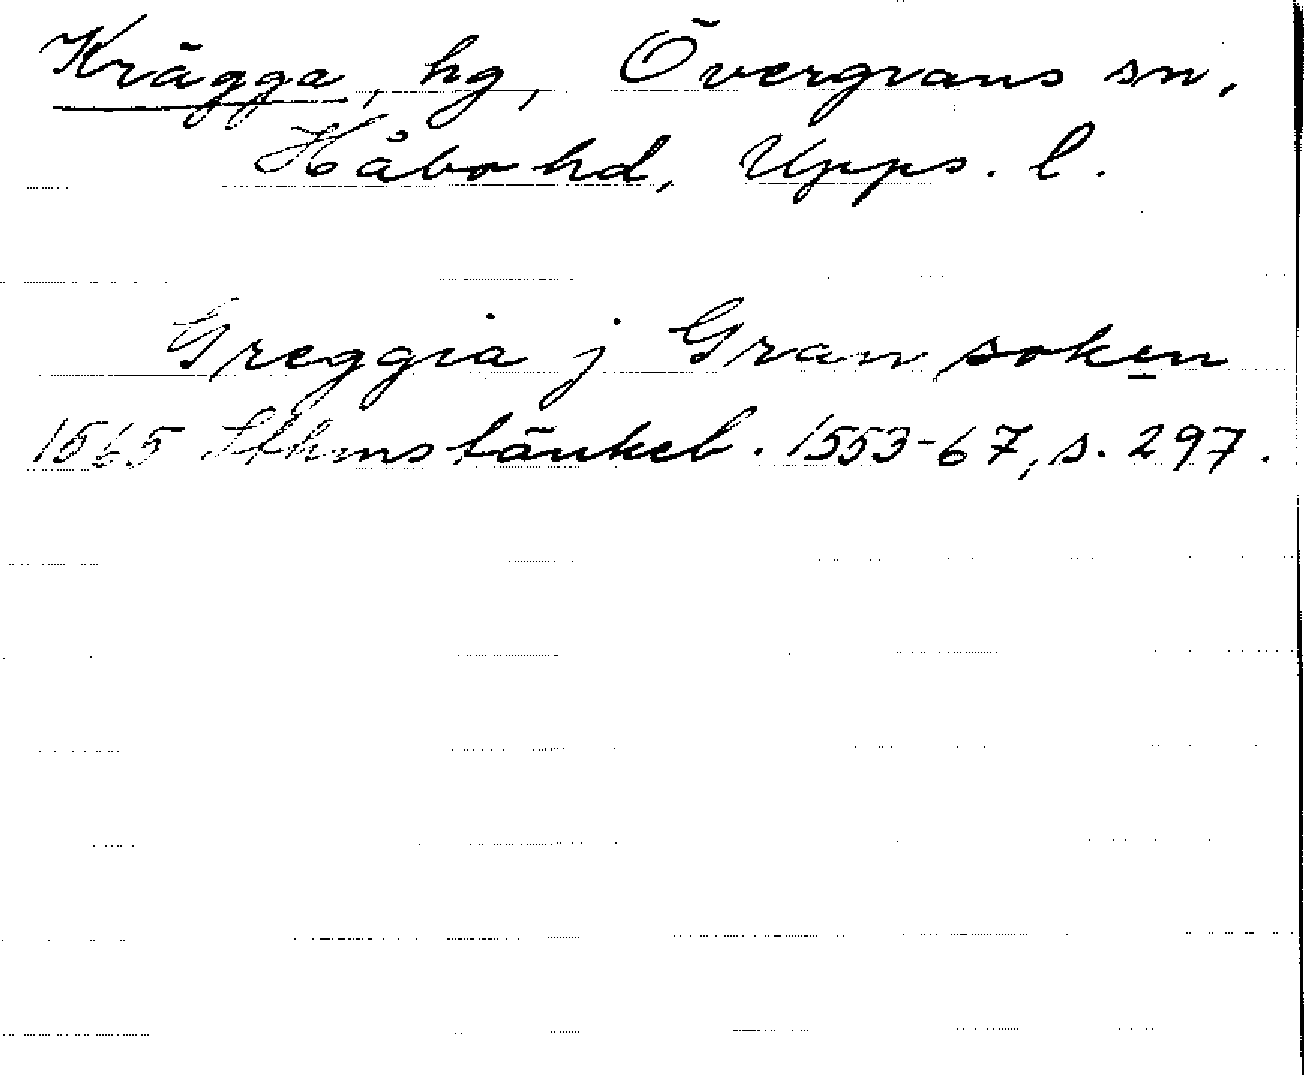 Krägga, hg, Övergrans sn,
Håbo hd, Upps. l.
Greggia j Gran soken
1565 Sthms tänkeb. 1553-67, s. 297.